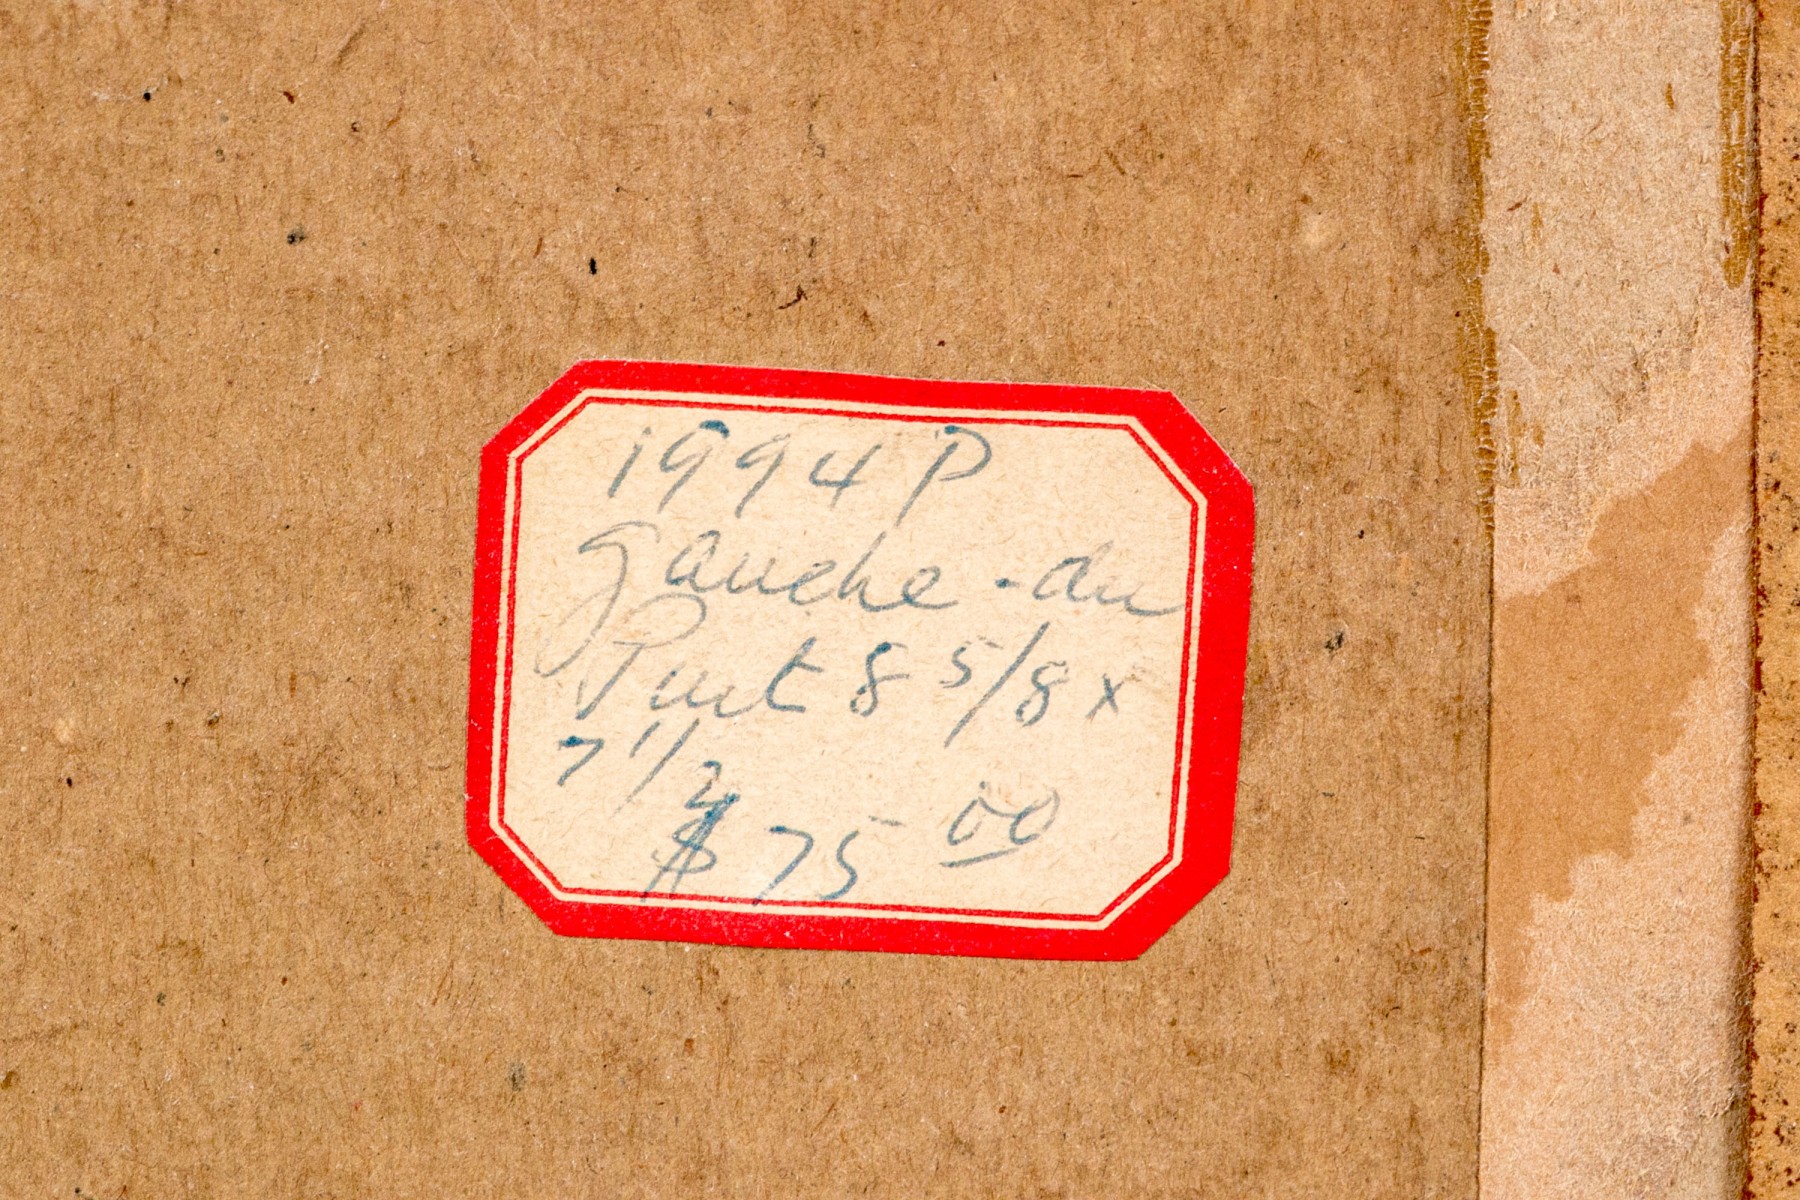 1994 P
Gauche - du
Put 8 5/8 x
7 1/2
$ 75 00